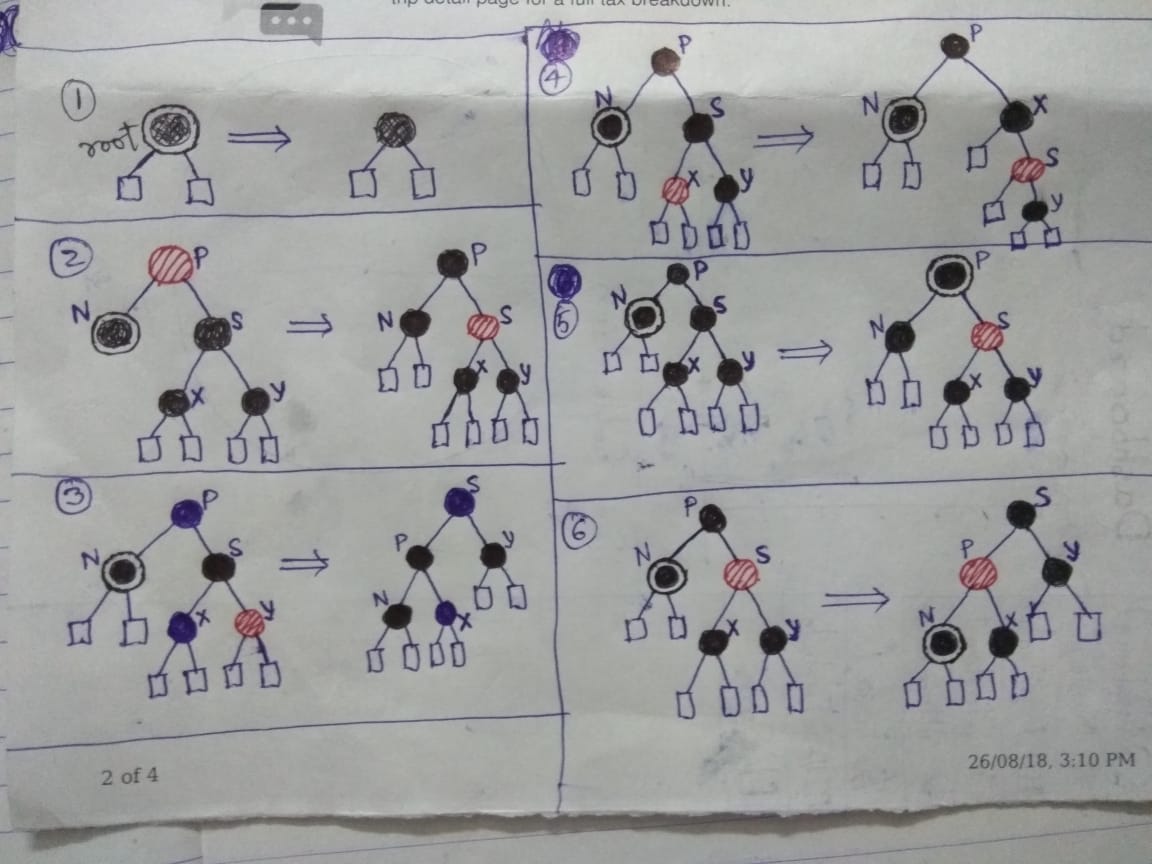 trip detail page for a full tax breakdown.
1
root
2
P
N S
X y
P
N S
X y
3
P
N S
X y
S
P y
N X
4
P
N S
X y
P
N X
S
y
5
P
N S
X y
P
N S
X y
6
P
N S
X y
S
P y
N X
2 of 4
26/08/18, 3:10 PM